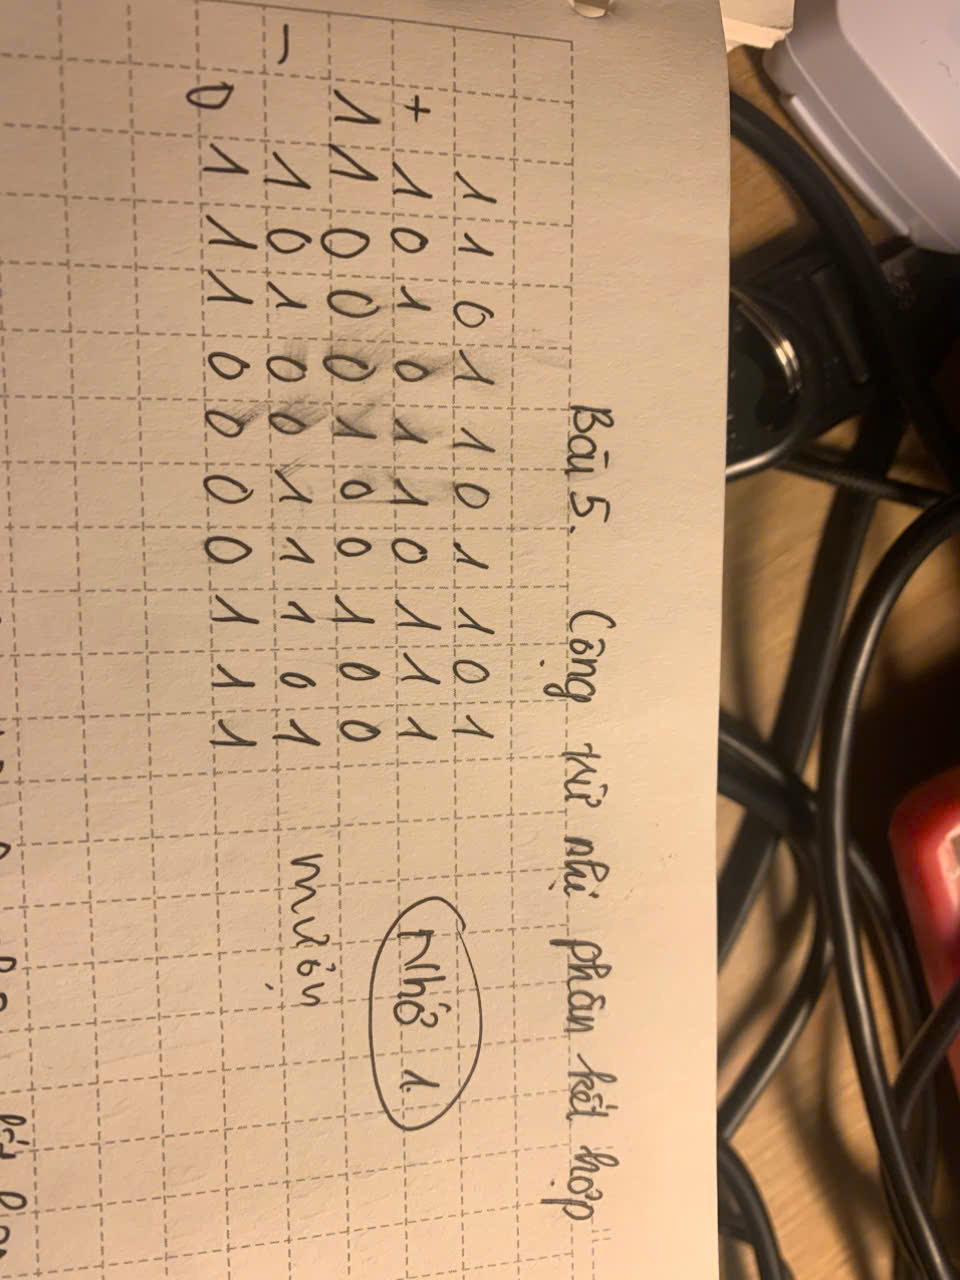 Bài 5. Cộng trừ nhị phân kết hợp
1 1 0 1 1 0 1 1 0 1
+ 1 0 1 0 1 1 0 1 1 1 Nhớ 1
1 1 0 0 0 1 0 0 1 0 0
- 1 0 1 0 0 1 1 1 0 1 mượn
0 1 1 1 0 0 0 0 1 1 1